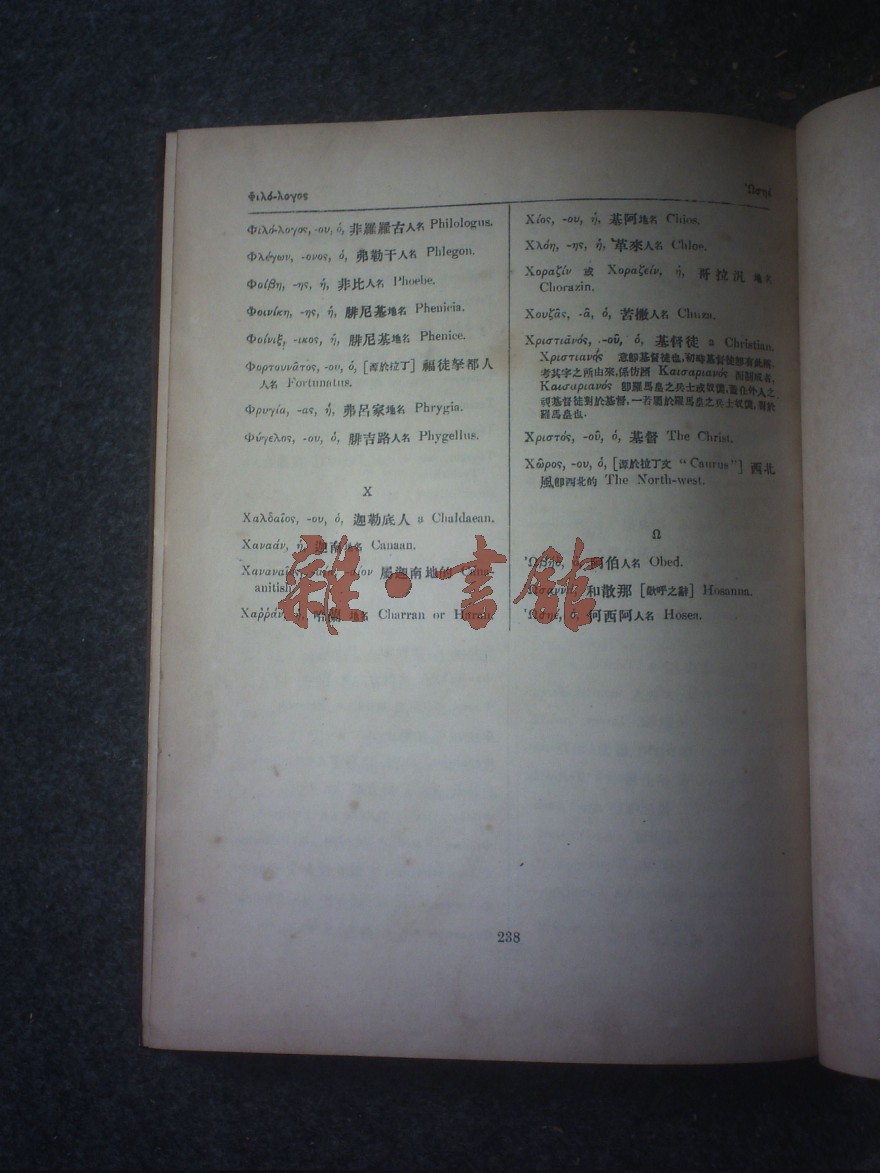 Φιλό-λογος
Ὡσηέ
Φιλό-λογος, -ου, ὁ, 非羅羅古人名 Philologus.
Φλέγων, -ονος, ὁ, 弗勒干人名 Phlegon.
Φοίβη, -ης, ἡ, 非比人名 Phoebe.
Φοινίκη, -ης, ἡ, 腓尼基地名 Phenicia.
Φοίνιξ, -ικος, ἡ, 腓尼基地名 Phenice.
Φορτουνᾶτος, -ου, ὁ, [源於拉丁] 福徒拏都人
人名 Fortunatus.
Φρυγία, -ας, ἡ, 弗呂家地名 Phrygia.
Φύγελος, -ου, ὁ, 腓吉路人名 Phygellus.
Χ
Χαλδαῖος, -ου, ὁ, 迦勒底人 a Chaldaean.
Χαναάν, ἡ, 迦南地名 Canaan.
Χαναναῖος, -αία, -αῖον 屬迦南地的 Cana-
anitish.
Χαῤῥάν, ἡ, 哈蘭 地名 Charran or Haran.
Χίος, -ου, ἡ, 基阿地名 Chios.
Χλόη, -ης, ἡ, 革來人名 Chloe.
Χοραζίν 或 Χοραζείν, ἡ, 哥拉汎 地名
Chorazin.
Χουζᾶς, -ᾶ, ὁ, 苦撒人名 Chuza.
Χριστιᾱνός, -οῦ, ὁ, 基督徒 a Christian.
Χριστιανός 意卽基督徒也,初時基督徒卽有此稱,
考其字之所由來,係仿照 Καισαριανός 而制成者,
Καισαριανός 卽羅馬皇之兵士或奴僕,蓋在外人之
視基督徒對於基督,一若屬於羅馬皇之兵士奴僕,對於
羅馬皇也.
Χριστός, -οῦ, ὁ, 基督 The Christ.
Χῶρος, -ου, ὁ, [源於拉丁文 “Caurus”] 西北
風,卽西北的 The North-west.
Ω
Ὠβήδ, ὁ, 阿伯人名 Obed.
Ὡσαννά, 和散那 [歡呼之辭] Hosanna.
Ὡσηέ, ὁ, 何西阿人名 Hosea.
雜·書館
238